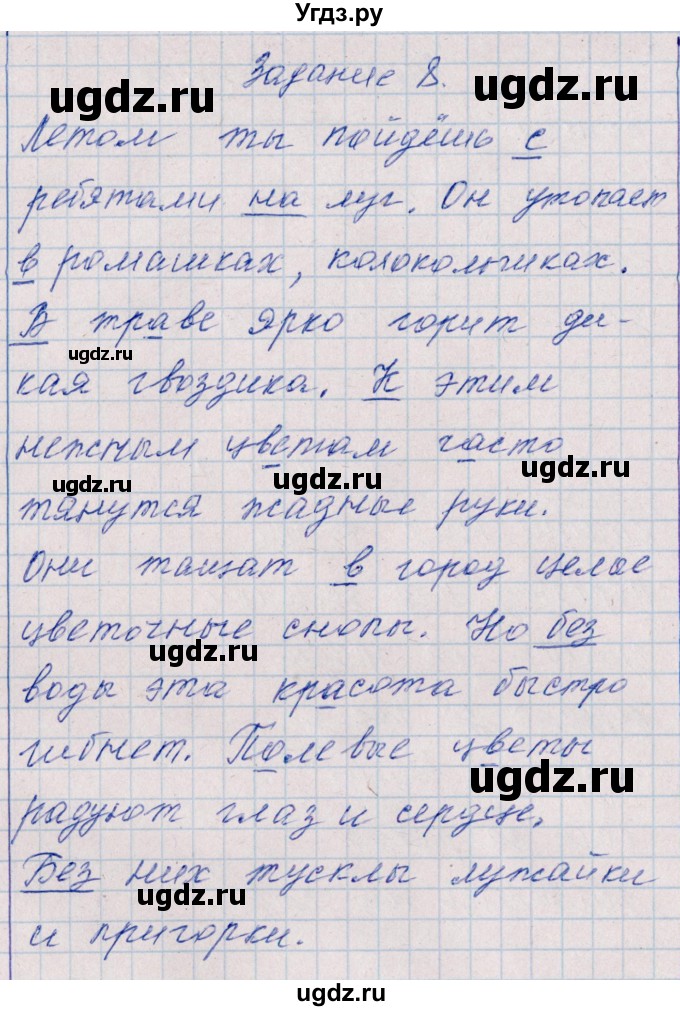 Угдз.ру
Задание 8.
ugdz.ru ugdz.ru
Летом ты пойдёшь с
ребятами на луг. Он утопает
ugdz.ru ugdz.ru
в ромашках, колокольчиках.
В траве ярко горит ди-
ugdz.ru
кая гвоздика. К этим
нежным цветам часто
ugdz.ru ugdz.ru
тянутся жадные руки.
Они тащат в город целые
ugdz.ru
цветочные снопы. Но без
ugdz.ru
воды эта красота быстро
гибнет. Полевые цветы
ugdz.ru
радуют глаз и сердце.
Без них тусклы лужайки
ugdz.ru
и пригорки.
ugdz.ru